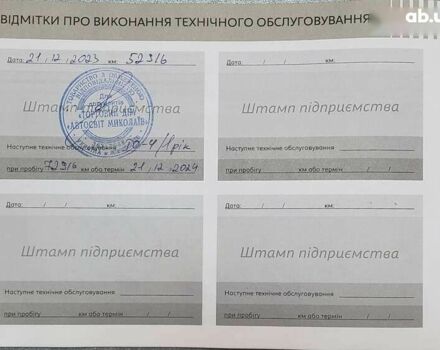 ab.u
ВІДМІТКИ ПРО ВИКОНАННЯ ТЕХНІЧНОГО ОБСЛУГОВУВАННЯ
Дата: 21, 12, 2023 км: 52316
Штамп підприємства
Для документів
"ТОРГОВИЙ ДІМ
"АВТОСВІТ МИКОЛАЇВ"
Наступне технічне обслуговування ТО-4/1 рік
при пробігу 72316 км або термін 21, 12, 2024
Дата: / / км:
Штамп підприємства
Наступне технічне обслуговування
при пробігу км або термін / /
Дата: / / км:
Штамп підприємства
Наступне технічне обслуговування
при пробігу км або термін / /
Дата: / / км:
Штамп підприємства
Наступне технічне обслуговування
при пробігу км або термін / /